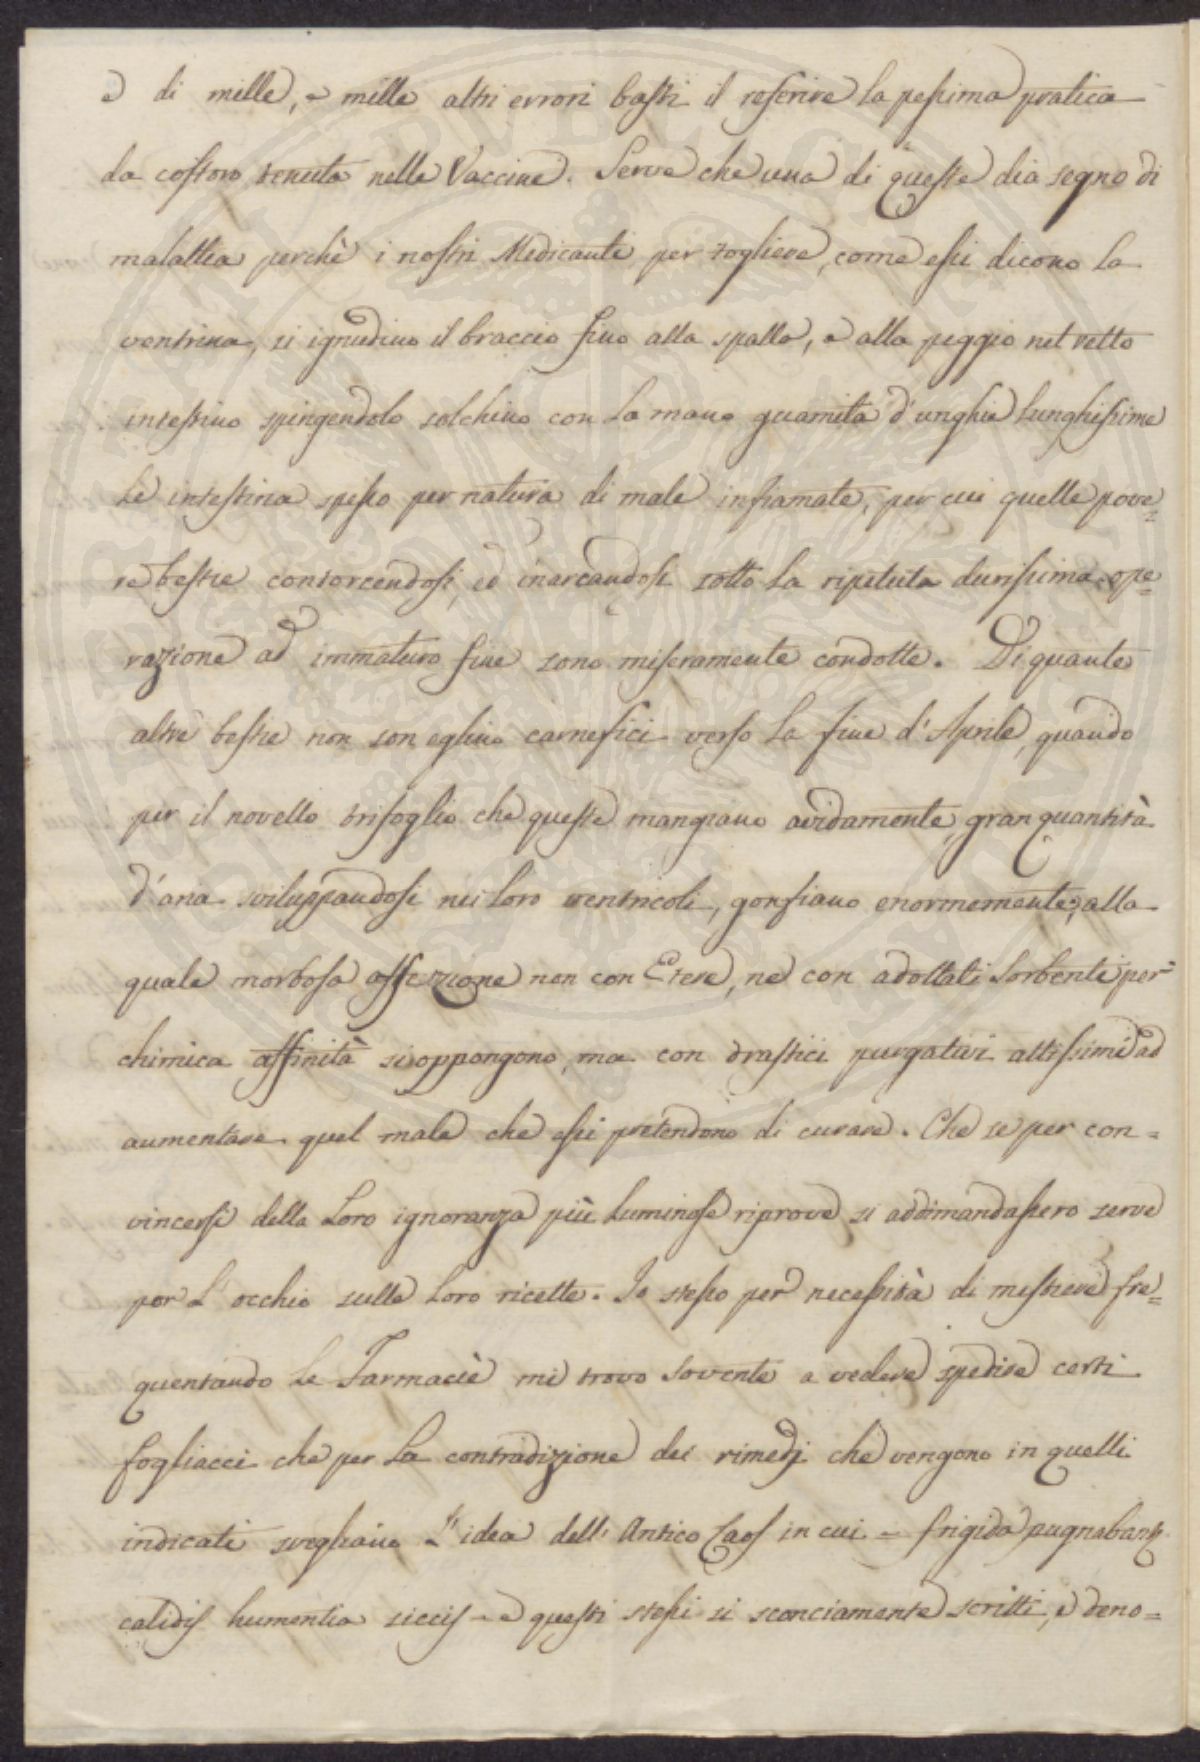 e di mille, e mille altri errori basti il referire la pessima pratica
da costoro tenuta nelle Vaccine. Serve che una di queste dia segno di
malattia perchè i nostri Medicanti per togliere, come essi dicono la
ventrina, si ignudino il braccio fino alla spalla, e alla peggio nel retto
intestino spingendolo solchino con la mano guarnita d'unghie lunghissime
le intestina spesso per natura di male infiamate, per cui quelle pove=
re bestie contorcendosi, ed inarcandosi sotto la ripetuta durissima ope=
razione ad immaturo fine sono miseramente condotte. Di quante
altre bestie non son eglino carnefici verso la fine d'Aprile, quando
per il novello trifoglio che queste mangiano avidamente, gran quantità
d'aria sviluppandosi nei loro ventricoli, gonfiano enormemente; alla
quale morbosa affezzione non con Etere, ne con adottati Sorbenti per
chimica affinità si oppongono, ma con drastici purgativi attissimi ad
aumentare quel male che essi pretendono di curare. Che se per con=
vincersi della Loro ignoranza più luminose riprove si addimandassero serve
por L'occhio sulle Loro ricette. Io stesso per necessità di mestiere fre=
quentando Le Farmacie mi trovo Sovente a vedere spedire certi
fogliacci che per La contradizione dei rimedj che vengono in quelli
indicati svegliano L'idea dell'Antico Caos in cui = frigida pugnabant
calidis humentia siccis = e questi stessi si sconciamente scritti, e deno=